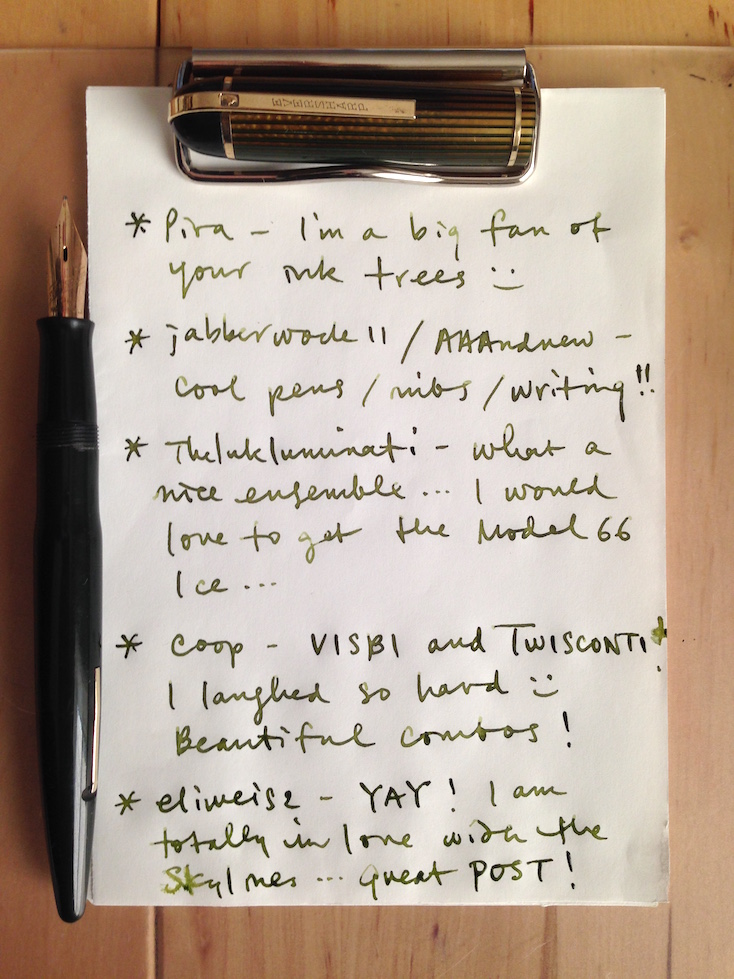 EVERSHARP
* Pira - I'm a big fan of
your ink trees :)
* jabberwock11 / AAAndrew -
cool pens / nibs / writing!!
* TheInkluminati - what a
nice ensemble... I would
love to get the Model 66
Ice...
* Coop - VISBI and TWISCONTI!
I laughed so hard :)
Beautiful combos!
* eliweisz - YAY! I am
totally in love with the
Skylines ... great POST!